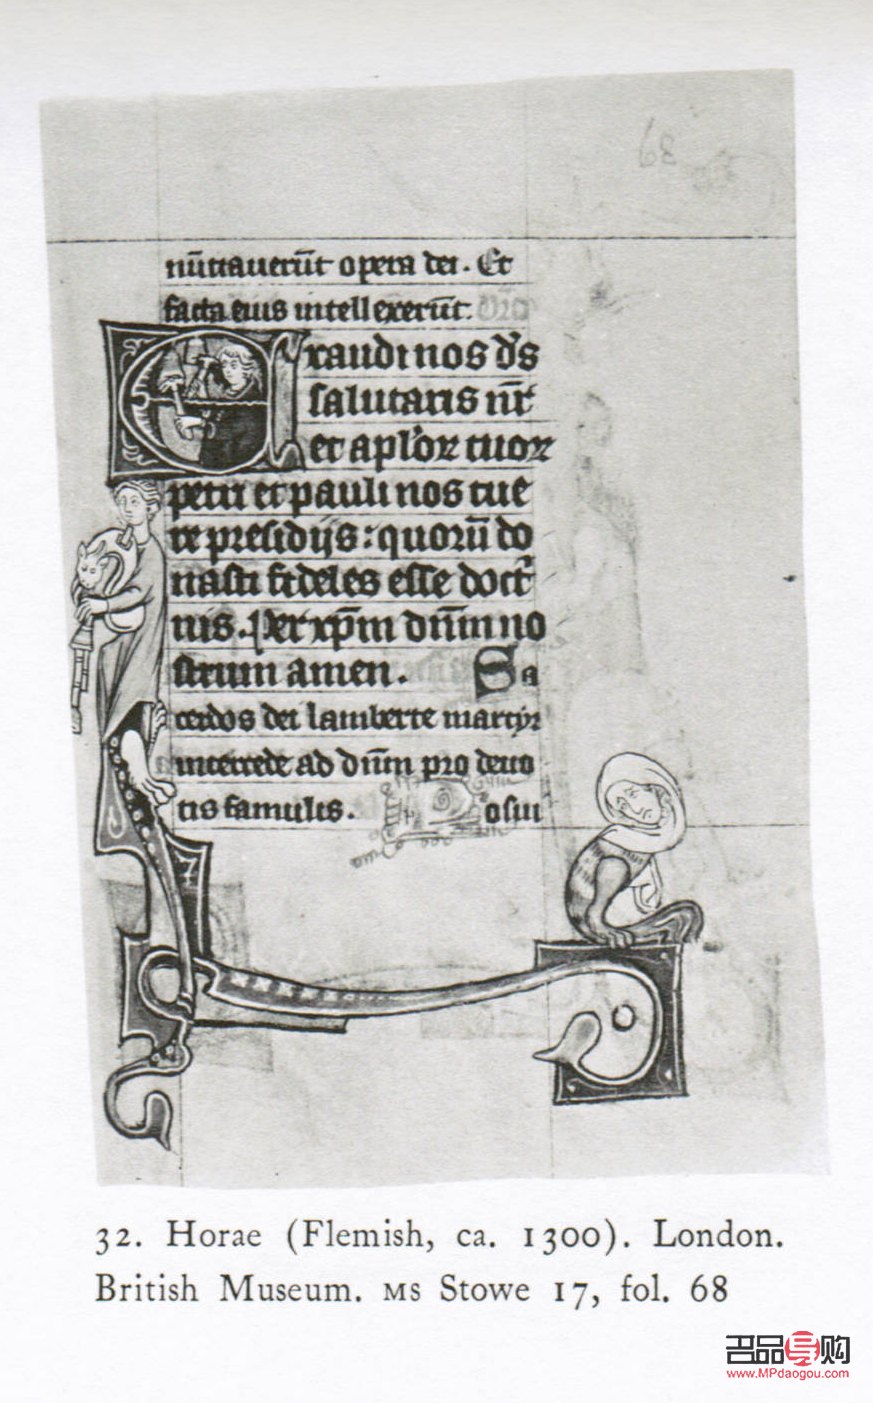 nūtiauerūt opera dei. Et
facta eius intellexerūt.
Exaudi nos d̄s
salutaris nr̄
et apl'oꝝ tuoꝝ
petri et pauli nos tue
re presidijs: quorū do
nasti fideles esse doct
nis. Per xp̄m dn̄m no
strum amen. Sa
cerdos dei lamberte martyr
intercede ad dn̄m pro deuo
tis famulis. Posui
32. Horae (Flemish, ca. 1300). London.
British Museum. MS Stowe 17, fol. 68
名品导购
www.MPdaogou.com